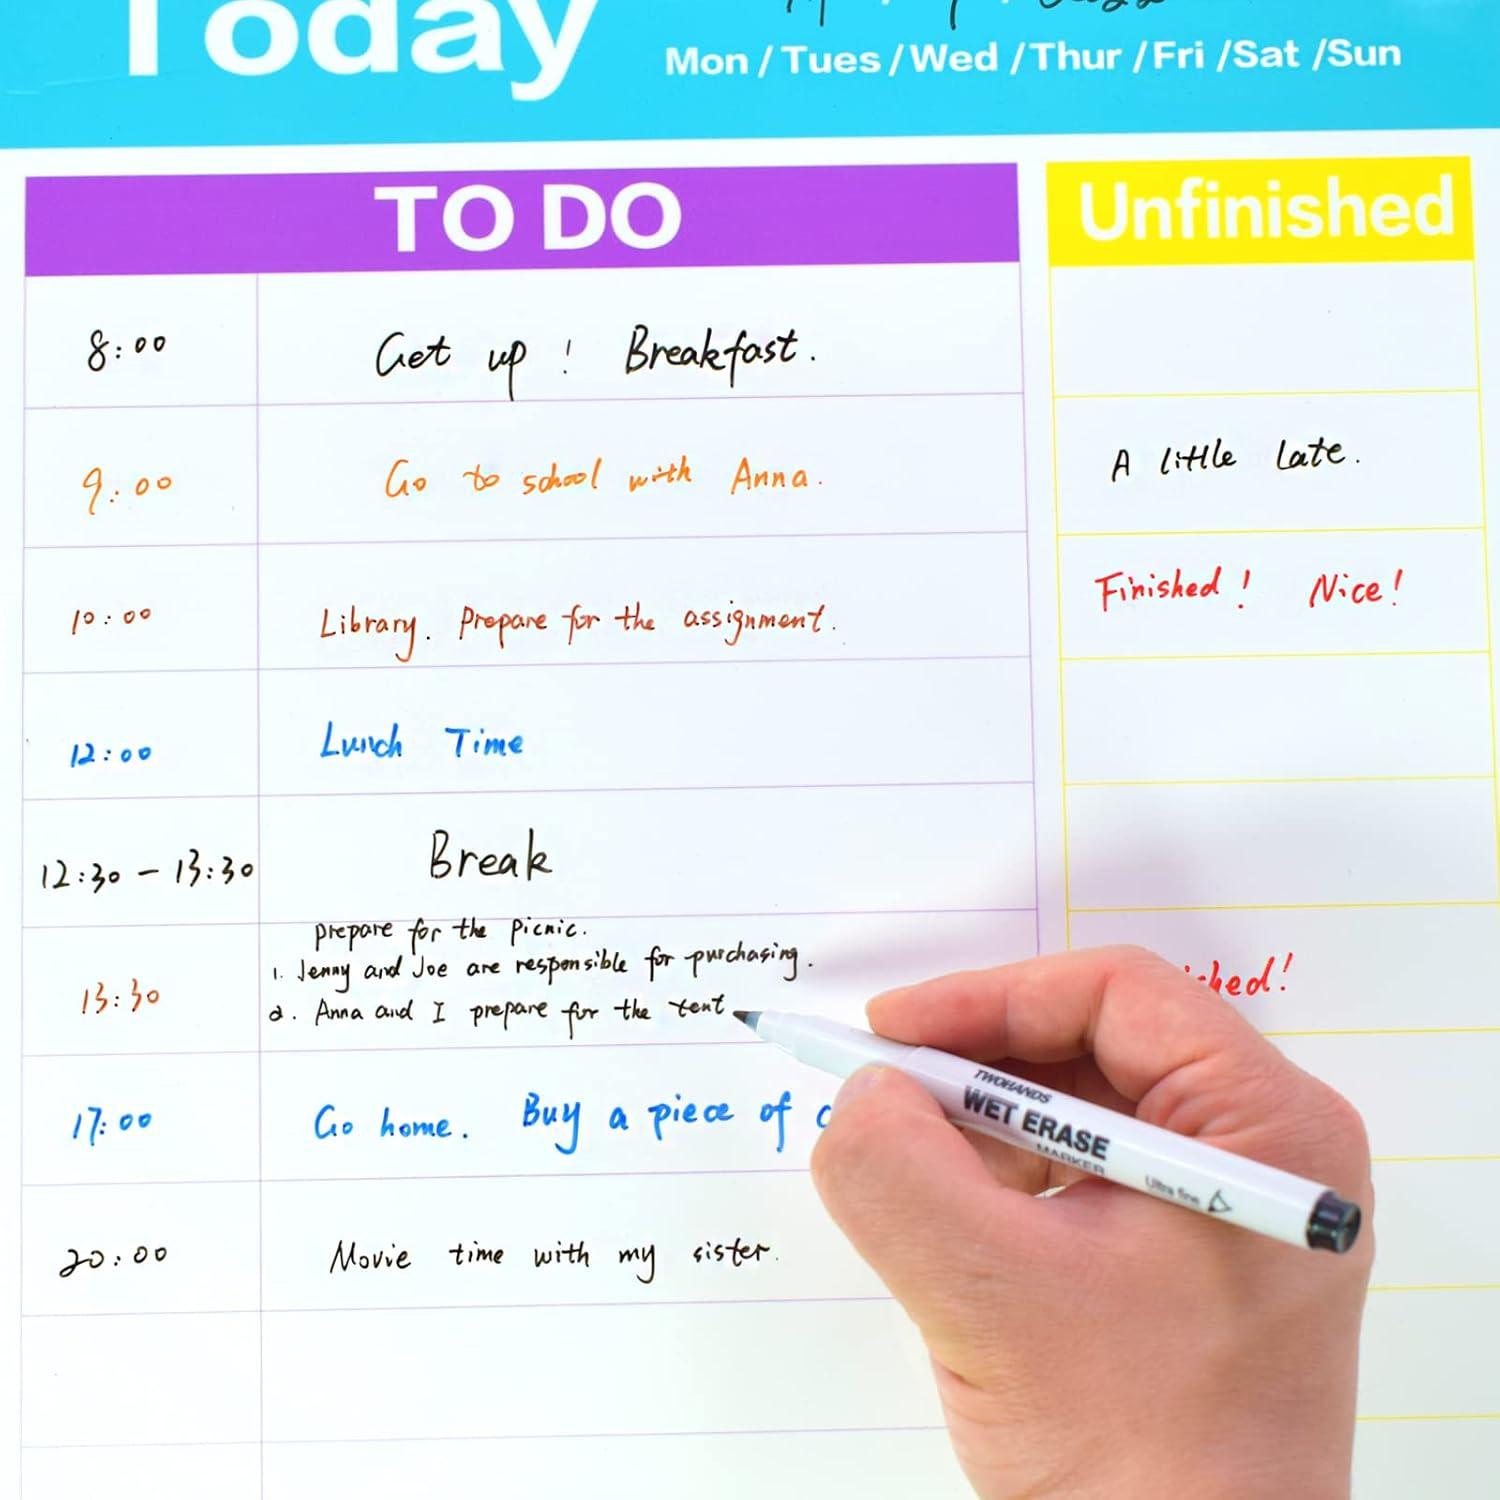 Today
Mon / Tues / Wed / Thur / Fri / Sat / Sun
TO DO
Unfinished
8:00
Get up! Breakfast.
9:00
Go to school with Anna.
A little late.
10:00
Library. Prepare for the assignment.
Finished! Nice!
12:00
Lunch Time
12:30 - 13:30
Break
13:30
prepare for the picnic.
1. Jenny and Joe are responsible for purchasing.
2. Anna and I prepare for the tent
17:00
Go home. Buy a piece of
20:00
Movie time with my sister.
TWOHANDS
WET ERASE
MARKER
Ultra fine